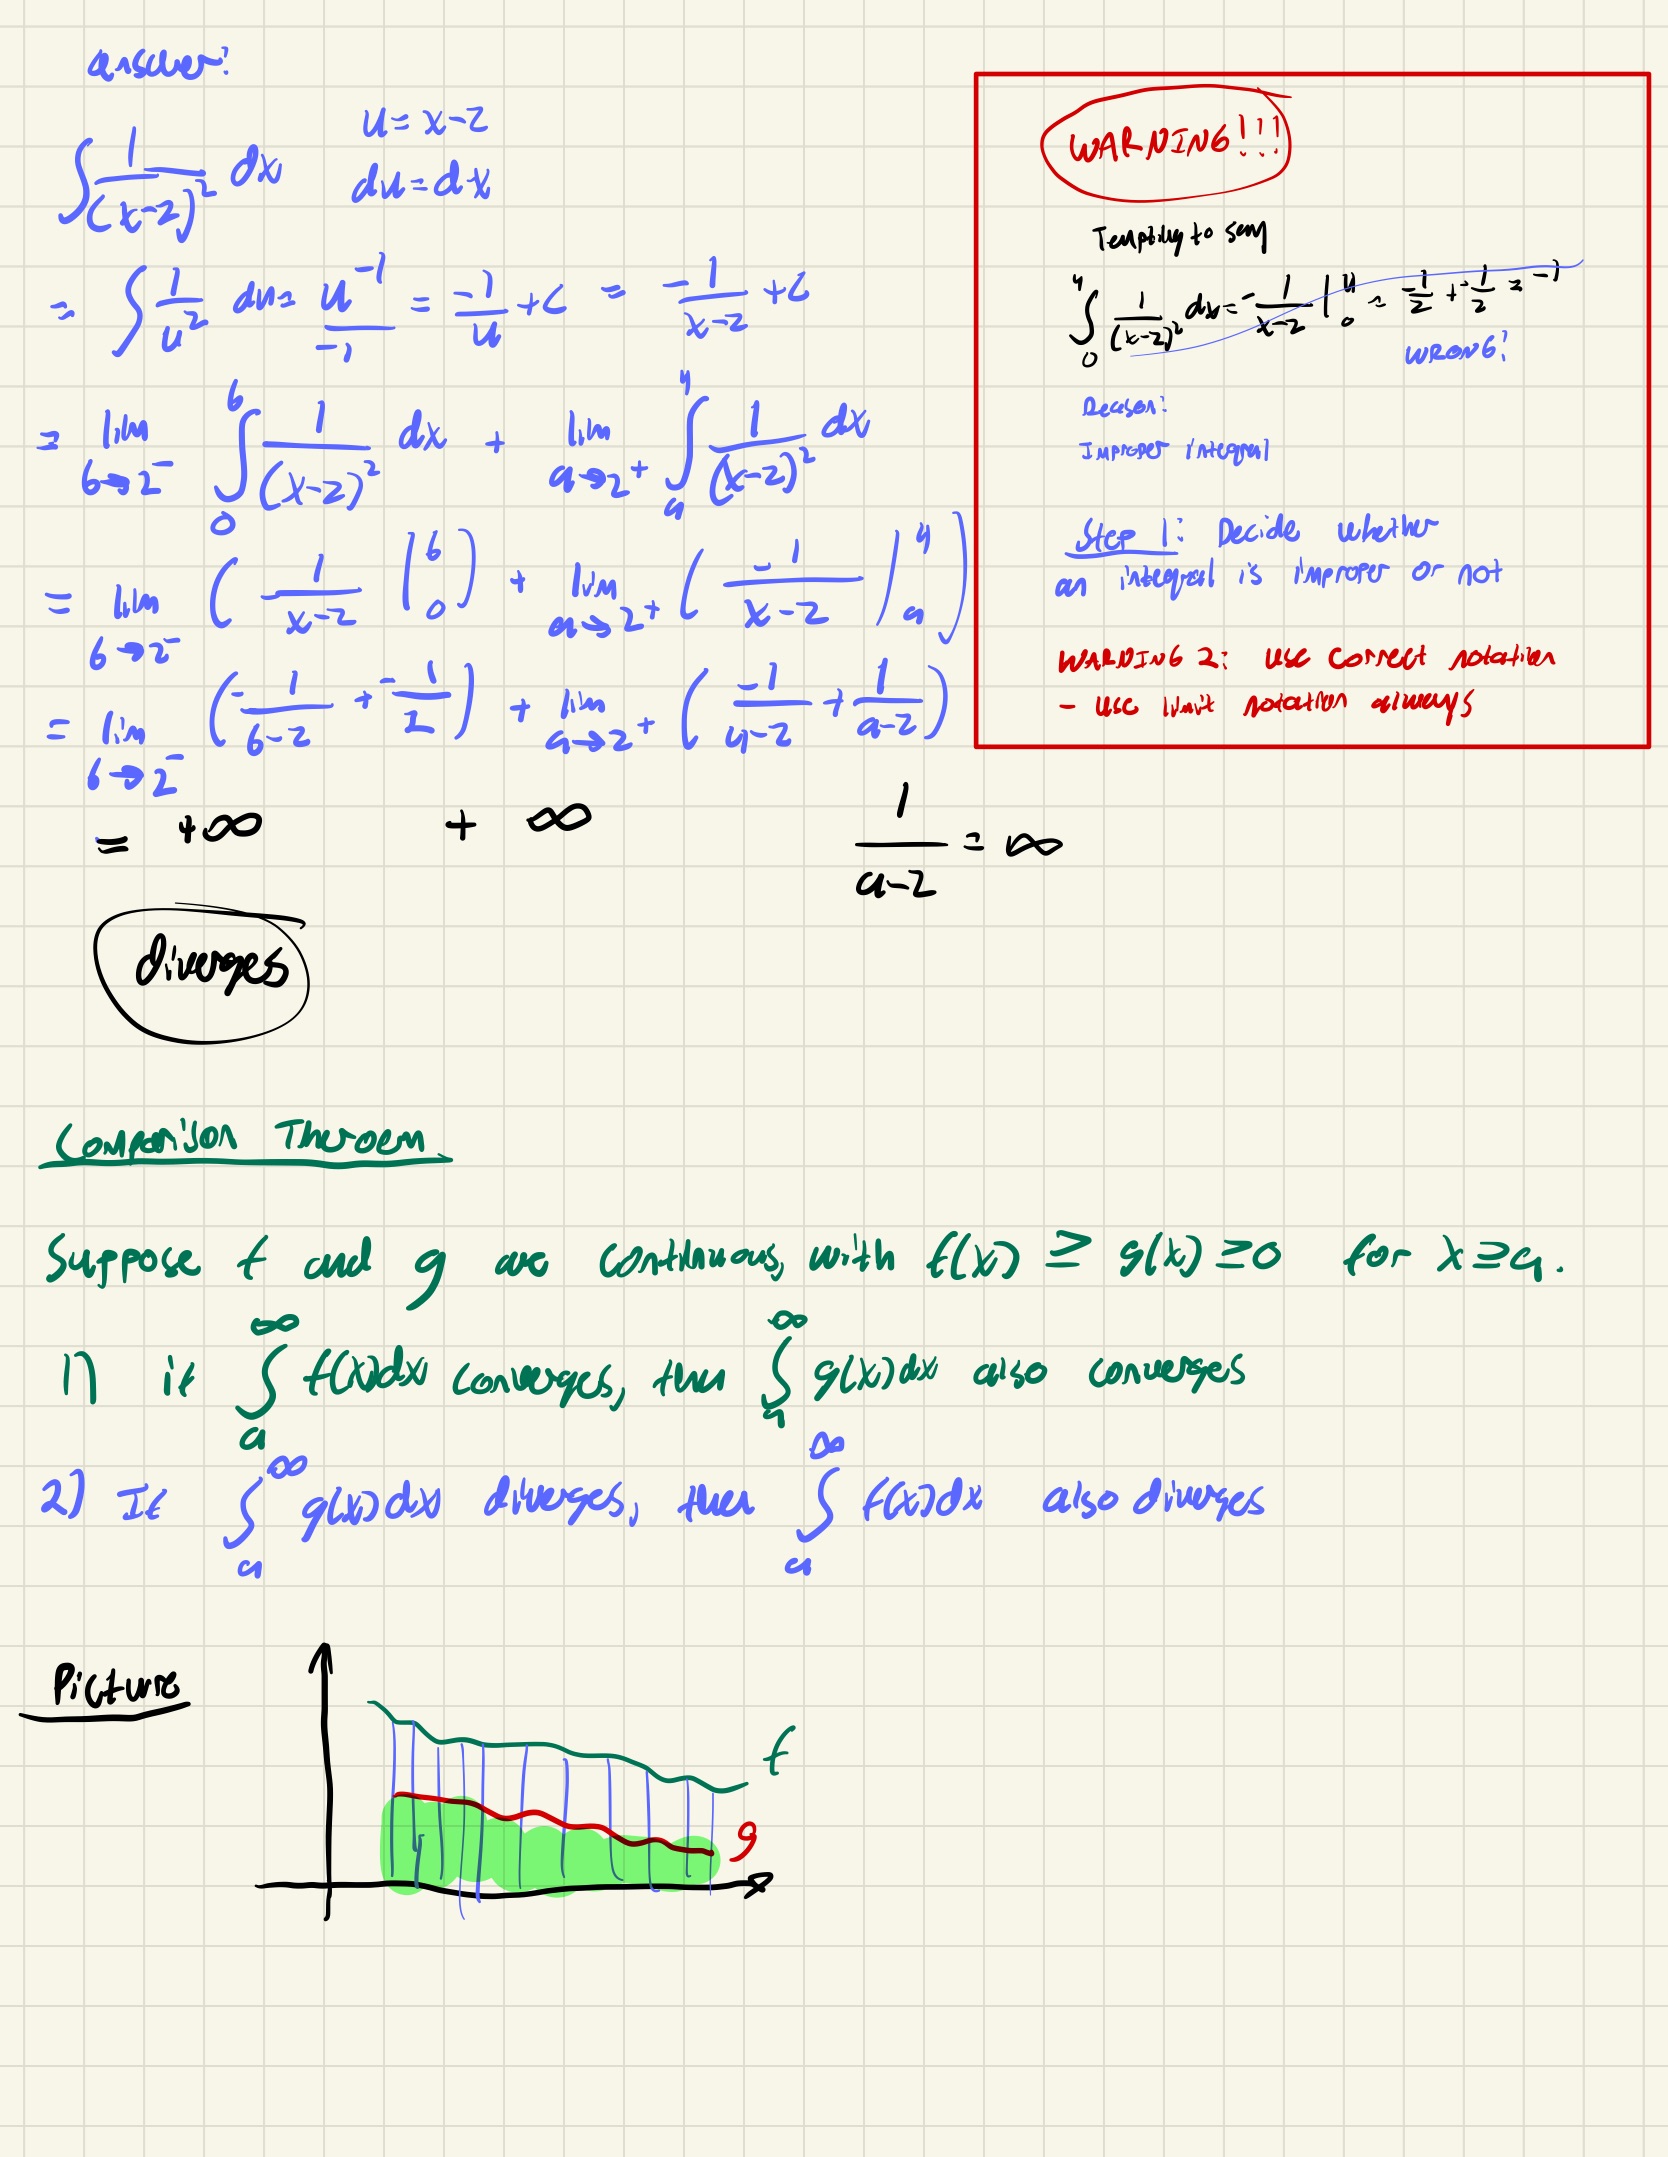 answer:
∫ 1/(x-2)² dx   u = x-2
du = dx
= ∫ 1/u² du = u⁻¹/-1 = -1/u + C = -1/(x-2) + C
= lim b→2⁻ ∫₀ᵇ 1/(x-2)² dx + lim a→2⁺ ∫ₐ⁴ 1/(x-2)² dx
= lim b→2⁻ ( -1/(x-2) |₀ᵇ ) + lim a→2⁺ ( -1/(x-2) |ₐ⁴ )
= lim b→2⁻ ( -1/(b-2) + -1/2 ) + lim a→2⁺ ( -1/(4-2) + 1/(a-2) )
= +∞ + ∞   1/(a-2) = ∞
diverges
WARNING!!!
Tempting to say
∫₀⁴ 1/(x-2)² dx = -1/(x-2) |₀⁴ = -1/2 + -1/2 = -1
WRONG!
Reason:
Improper integral
Step 1: Decide whether
an integral is improper or not
WARNING 2: use correct notation
- use limit notation always
Comparison Theroem
Suppose f and g are continuous, with f(x) ≥ g(x) ≥ 0 for x ≥ a.
1) if ∫ₐ^∞ f(x)dx converges, then ∫ₐ^∞ g(x)dx also converges
2) If ∫ₐ^∞ g(x)dx diverges, then ∫ₐ^∞ f(x)dx also diverges
Picture
f
g